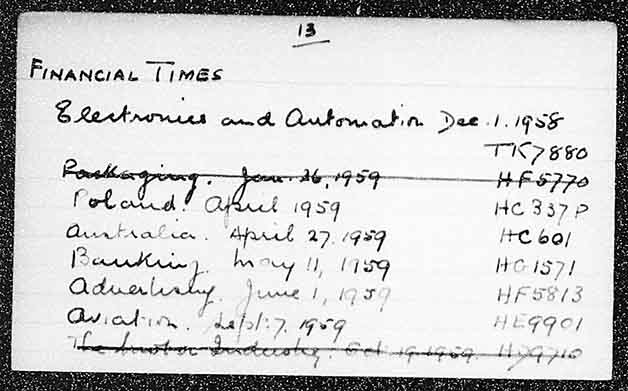 13
FINANCIAL TIMES
Electronics and Automation Dec. 1. 1958
TK7880
Packaging. Jan. 26, 1959 HF5770
Poland. April 1959 HC337P
Australia. April 27. 1959 HC601
Banking. May 11, 1959 HG1571
Advertising. June 1, 1959 HF5813
Aviation. Sept. 7. 1959 HE9901
The Motor Industry. Oct 19 1959. HD9710